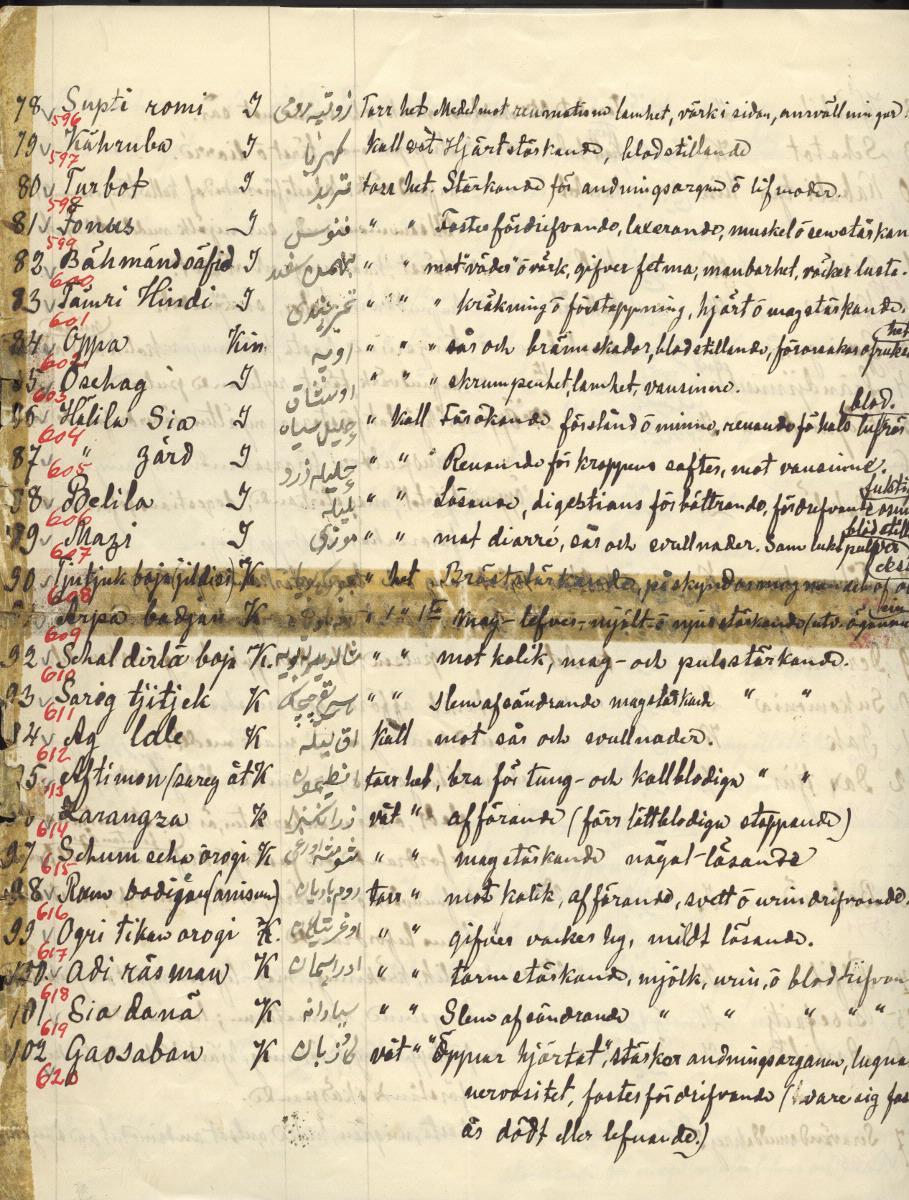 78 Supti romi I زوتیه رومی Torr het Medel mot reumatism lamhet, värk i sidan, ansvällningar
596
79 Kähruba I کهربا Kall våt Hjärtstärkande, blodstillande
597
80 Turbot I تربد torr het. Stärkande för andningsorgan ö lifmoder.
598
81 Fonus I فنوس " " Fosterfördrifvande, laxerande, muskel ö senstärkan
599
82 Bähmändsäfid I بهمن سفید " " mot "väder" ö värk, gifver fetma, manbarhet, väcker lusta.
600
83 Tämri Hindi I تمرهندی " " " kräkning ö förstoppning, hjärt ö magstärkande.
601
84 Oppa Kin اوپه " " " sår och brännskador, blodstillande, förorsakar ofruktsam
het
602
85 Oschag I اوششاق " " " skrumpenhet, lamhet, vansinne.
603
86 Hälila Sia I حلیله سیاه " kall Försökande förstånd ö minne, renande för hals luftrör
blod.
604
87 " zärd I حلیله زرد " " " Renande för kroppens safter, mot vansinne.
605
88 Belila I بلیله " " Lösande, digestions förbättrande, fördrefvande
606
89 Mazi I موزی " " mot diarré, sår och svullnader. Som luktpulver
blodstill
607
90 Tjutjuk boja (jildisi) K " het Bröststärkande, påskyndar mognandet af
608
Arpa badjan K " " mag- lefver- mjält- ö njurstärkande (utv. ögon
609
92 Schaldirlä boja K. " " mot kolik, mag- och pulsstärkande.
610
93 Sarig tjitjek K سریق چیچک " " Slemafsöndrande magstärkande " "
611
94 Aq lale K اق لیله Kall mot sår och svullnader.
612
95 Aftimon (sareg ät K افتیمون torr het, bra för tung- och kallblodiga " "
613
Zarangza K زرانگزا våt " afförande (förr lättblodiga stoppande)
614
97 Schumscha orogi K شومشه اورغی " " magstärkande något lösande
615
98 Rom badigan (anisum) K رومبادیان torr " mot kolik, afförande, svett ö urindrifvande.
616
99 Ogri tikan orogi K. " " gifver vacker hy, mildt lösande.
617
100 Adi räsman K ادراسمان " " tarmstärkande, mjölk, urin, ö bloddrifvan
618
101 Sia danä K سیادانه " " Slemafsöndrande " " " " "
619
102 Gaosaban K گاؤزبان våt " "Öppnar hjärtat", stärker andningsorganen, lugna
620
nervositet, fosterfördrifvande (vare sig fos
är dödt eller lefvande.)